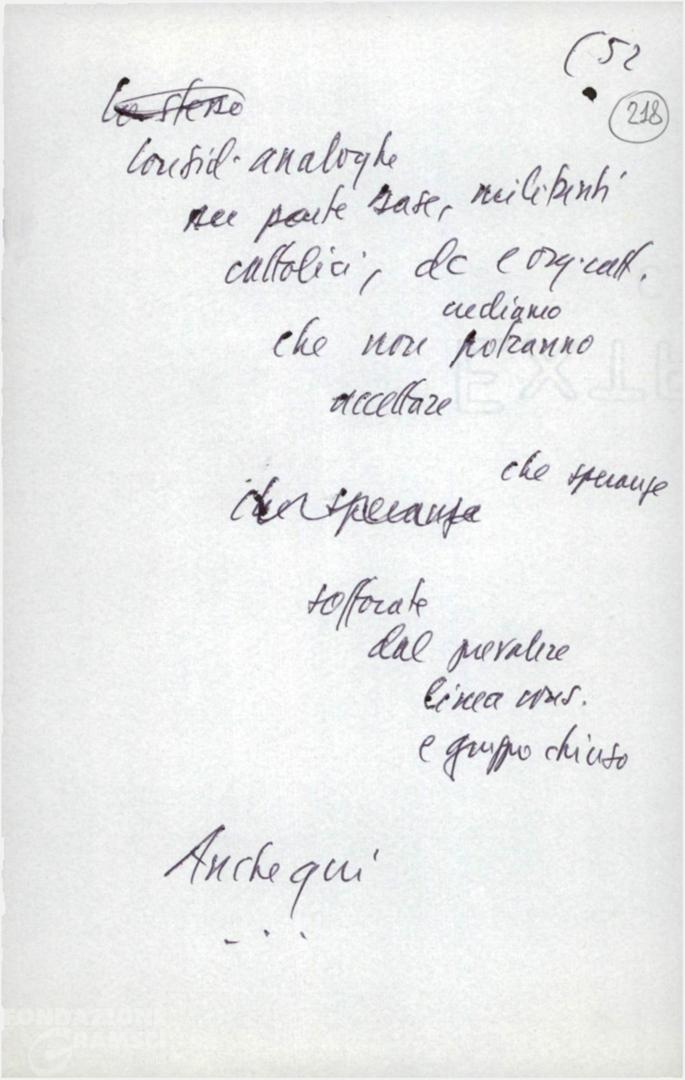 (52
218
Lo stesso
Consid. analoghe
su parte base, militanti
cattolici, dc e org. catt.
crediamo
che non potranno
accettare
che speranze
che speranze
soffocate
dal prevalere
linea cons.
e gruppo chiuso
Anche qui
...
FONDAZIONE
GRAMSCI